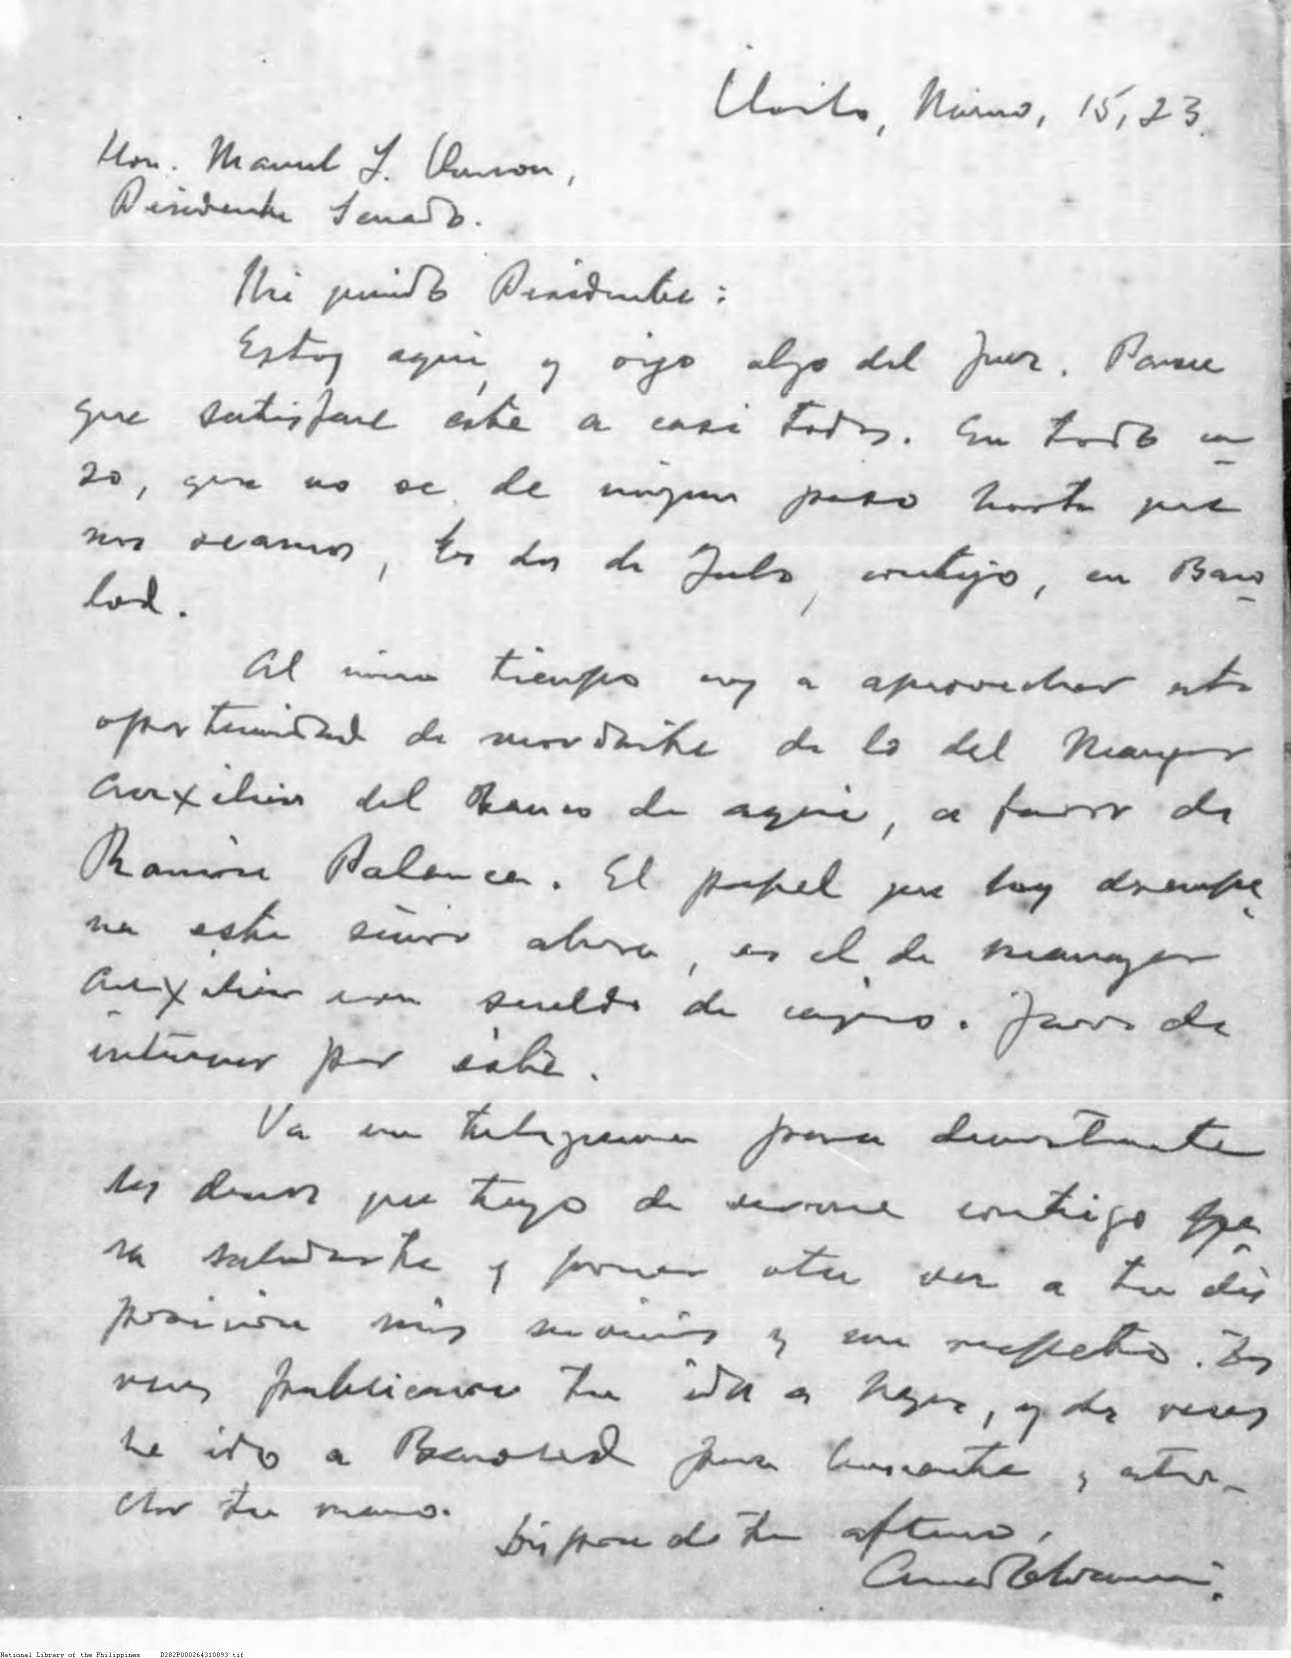 Iloilo, 15, 23.
Hon. Manuel L. Quezon,
Presidente Senado.
Mi querido Presidente:
Estoy aqui, y oigo algo del Juez. Parece
que satisface este a casi todos. En todo ca-
so, que no se de ningun paso hasta que
nos veamos, los dos de Julio, contigo, en Baco-
lod.
Al mismo tiempo voy a aprovechar esta
oportunidad de recordarte de lo del Manager
Auxiliar del Banco de aqui, a favor de
Ramon Palanca. El papel que hoy desempe-
ña este señor ahora, es el de manager
auxiliar con sueldo de cajero. Favor de
interesar por este.
Va un telegrama para demostrarte
los deseos que tengo de verme contigo pa-
ra saludarte y poner otra vez a tu dis
posicion mis servicios y mi respeto. Dos
veces publicaron tu ida a Negros, y dos veces
he ido a Bacolod para buscarte y estre-
char tu mano.
Dispon de tu afmo,
National Library of the Philippines D282P000264310093.tif